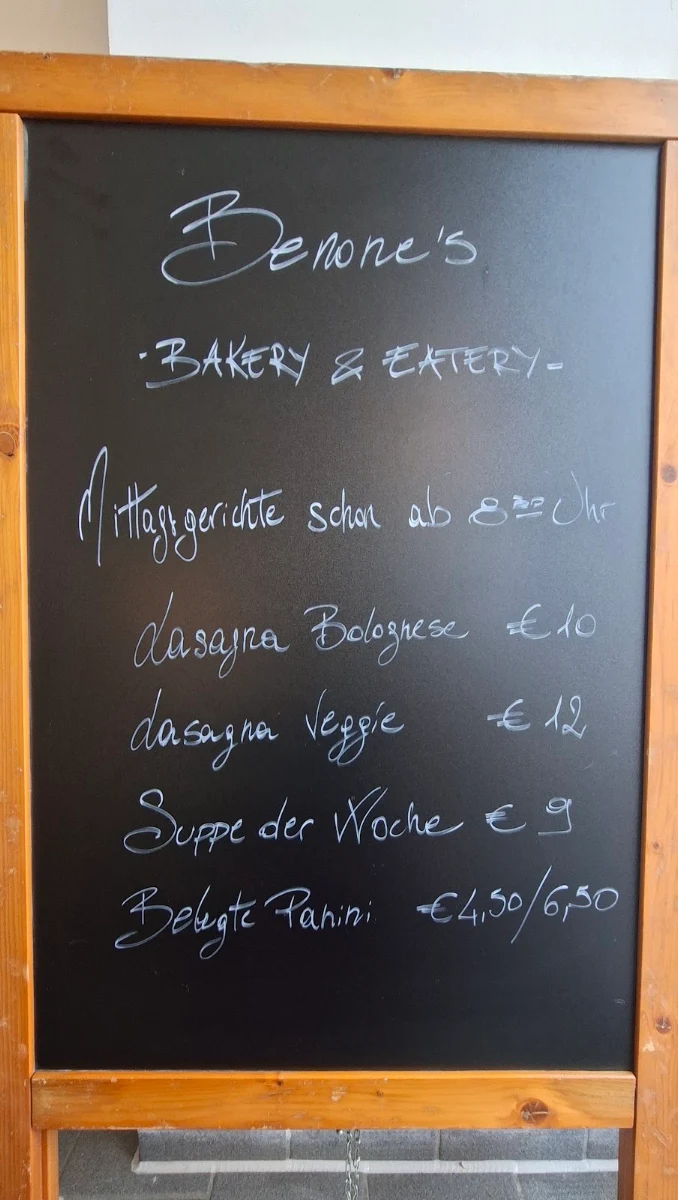 Benone's
- BAKERY & EATERY -
Mittagsgerichte schon ab 8³⁰ Uhr
Lasagna Bolognese € 10
Lasagna Veggie € 12
Suppe der Woche € 9
Belegte Panini € 4,50/6,50